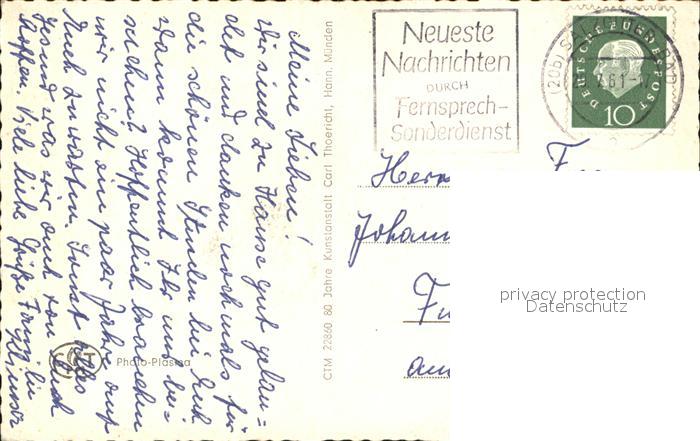 Meine Lieben!
Wir sind zu Hause gut gelan=
det und danken nochmals für
die schönen Stunden bei Euch
Wann kommt Ihr uns be=
suchen? Hoffentlich brauchen
wir nicht ein paar Jahre auf
Euch zu warten. Sonst alles
gesund was wir auch von Euch
hoffen. Viele liebe Grüße
CTM 22860 80 Jahre Kunstanstalt Carl Thoericht, Hann. Münden
Photo-Plasma
Neueste
Nachrichten
DURCH
Fernsprech-
Sonderdienst
(20b) SALZGITTER-BAD
61-17
DEUTSCHE BUNDESPOST
10
Herr
privacy protection
Datenschutz